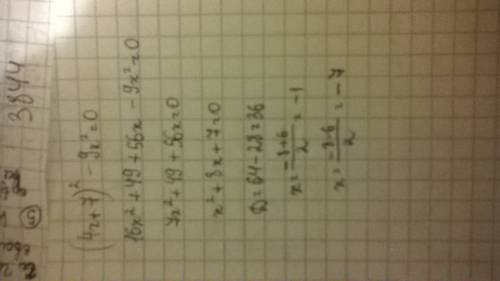 3844
(4x+7)² - 9x² = 0
16x² + 49 + 56x - 9x² = 0
7x² + 49 + 56x = 0
x² + 8x + 7 = 0
D = 64 - 28 = 36
x = (-8+6)/2 = -1
x = (-8-6)/2 = -7